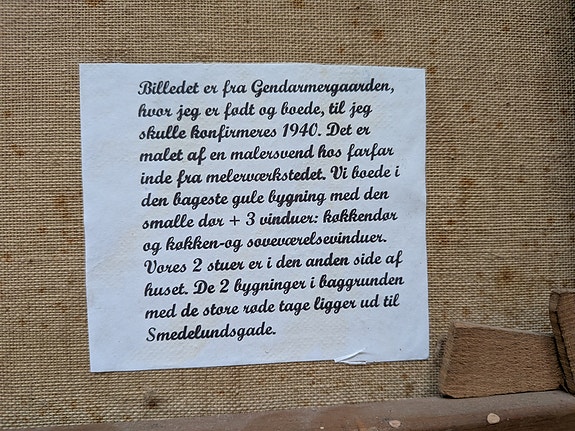 Billedet er fra Gendarmergaarden,
hvor jeg er født og boede, til jeg
skulle konfirmeres 1940. Det er
malet af en malersvend hos farfar
inde fra melerværkstedet. Vi boede i
den bageste gule bygning med den
smalle dør + 3 vinduer: køkkendør
og køkken-og soveværelsevinduer.
Vores 2 stuer er i den anden side af
huset. De 2 bygninger i baggrunden
med de store røde tage ligger ud til
Smedelundsgade.